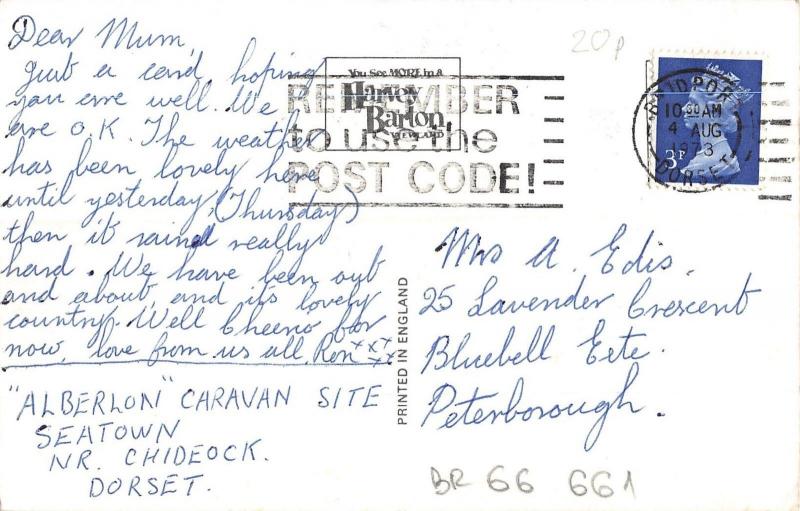 Dear Mum,
Just a card, hoping
you are well. We
are O.K. The weather
has been lovely here
until yesterday, (Thursday)
then it rained really
hard. We have been out
and about, and its lovely
country. Well Cheerio for
now, love from us all, Ron xxxxx
"ALBERLON" CARAVAN SITE
SEATOWN
NR. CHIDEOCK.
DORSET.
20p
You See MORE in a
Harvey
Barton
REMEMBER
to use the
POST CODE!
BRIDPORT
10 30 AM
4 AUG
1973
DORSET
3P
PRINTED IN ENGLAND
Mrs A. Edis.
25 Lavender Crescent
Bluebell Este.
Peterborough.
BR 66 661